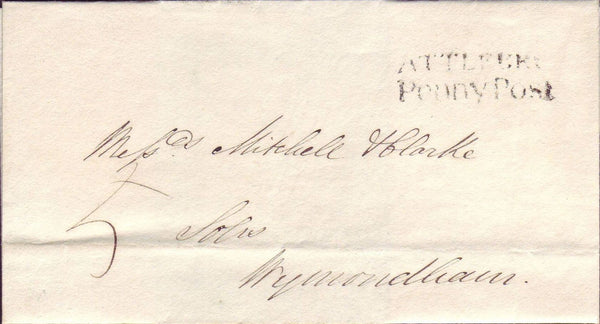 ATTLEBRO
Penny Post
Mess.rs Mitchell & Clarke
5
Solrs
Wymondham.